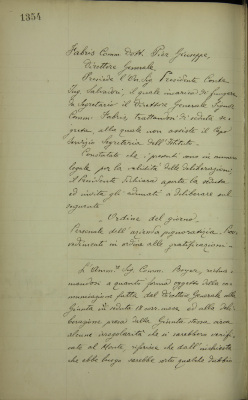 1354
Fabris Comm. Dott. Pier Giuseppe,
Direttore Generale.
Presiede l'On. Sig. Presidente Conte
Ing. Salvadori, il quale incarica di fungere
da Segretario il Direttore Generale Signor
Comm. Fabris, trattandosi di seduta se-
greta, alla quale non assiste il Capo
Servizio Segreteria dell'Istituto.
Constatato che i presenti sono in numero
legale per la validità delle deliberazioni,
il Presidente dichiara aperta la seduta
ed invita gli adunati a deliberare sul
seguente
Ordine del giorno
Personale dell'azienda pignoratizia. Prov-
vedimenti in ordine alle gratificazioni.
L'Amm.re Sig. Comm. Boyer, richia-
mandosi a quanto formò oggetto della co-
municazione fatta dal Direttore Generale alla
Giunta in seduta 12 mese ed alla deli-
berazione presa dalla Giunta stessa circa
alcune irregolarità che si sarebbero verifi-
cate al Monte, riferisce che dall'inchiesta
che ebbe luogo sarebbe sorto qualche dubbio